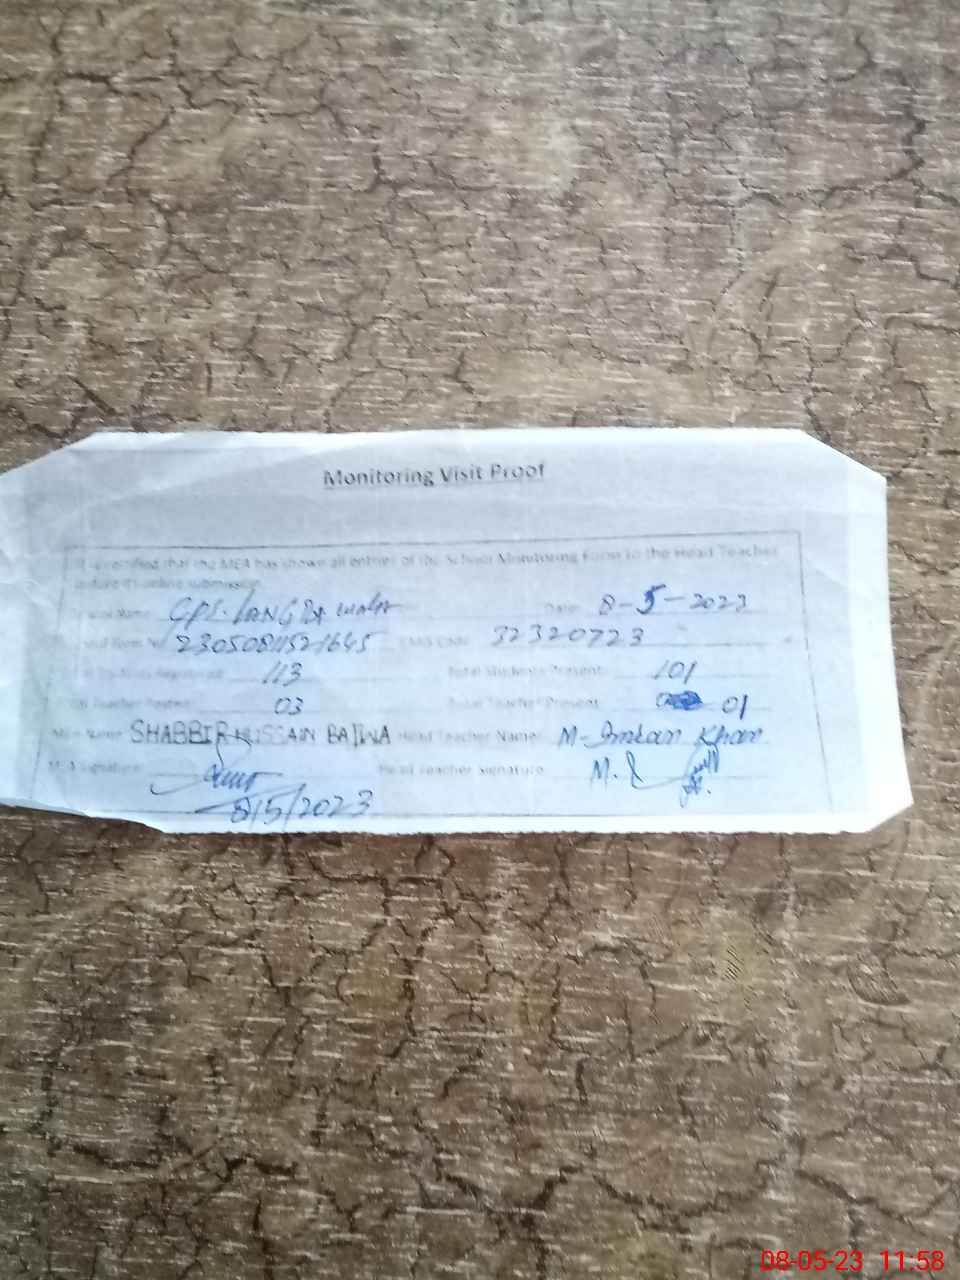 Monitoring Visit Proof
It is certified that the MEA has shown all entries of the School Monitoring Form to the Head Teacher
before its online submission.
Name GPS. Date: 8-5-2023
Form No 23050811521645 EMIS Code 32320723
Students Registered 113 Total Students Present: 101
Total Teacher Posted 03 Total Teacher Present 01
MEA Name SHABBIR HUSSAIN BAJWA Head Teacher Name: M-Imran Khan
MEA Signature Head Teacher Signature M.
8/5/2023
08-05-23 11:58